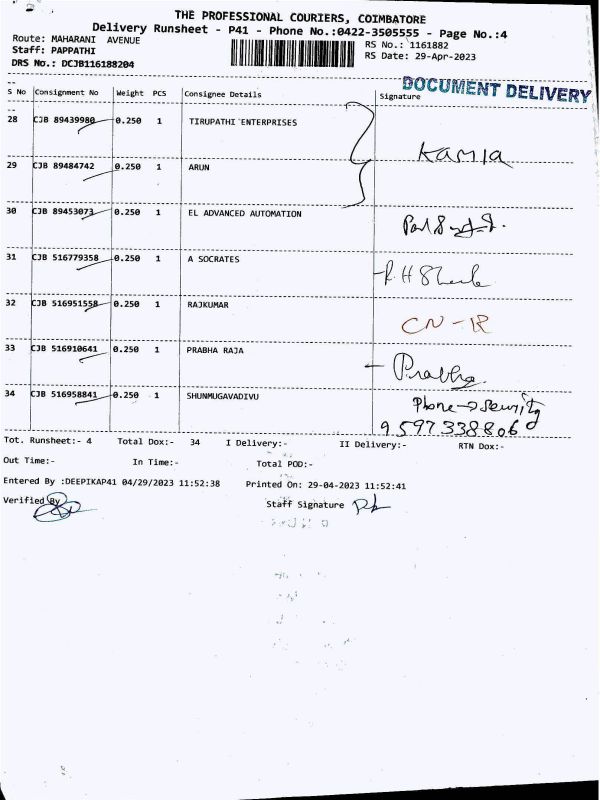 THE PROFESSIONAL COURIERS, COIMBATORE
Delivery Runsheet - P41 - Phone No.:0422-3505555 - Page No.:4
Route: MAHARANI AVENUE
RS No.: 1161882
Staff: PAPPATHI
RS Date: 29-Apr-2023
DRS No.: DCJB116188204
DOCUMENT DELIVERY
S No Consignment No Weight PCS Consignee Details Signature
28 CJB 89439980 0.250 1 TIRUPATHI ENTERPRISES
Kamla
29 CJB 89484742 0.250 1 ARUN
30 CJB 89453073 0.250 1 EL ADVANCED AUTOMATION
31 CJB 516779358 0.250 1 A SOCRATES
32 CJB 516951558 0.250 1 RAJKUMAR
CN-R
33 CJB 516910641 0.250 1 PRABHA RAJA
- Prabha
34 CJB 516958841 0.250 1 SHUNMUGAVADIVU
Phone → Security
9597338806
Tot. Runsheet:- 4 Total Dox:- 34 I Delivery:- II Delivery:- RTN Dox:-
Out Time:- In Time:- Total POD:-
Entered By :DEEPIKAP41 04/29/2023 11:52:38 Printed On: 29-04-2023 11:52:41
Verified By Staff Signature